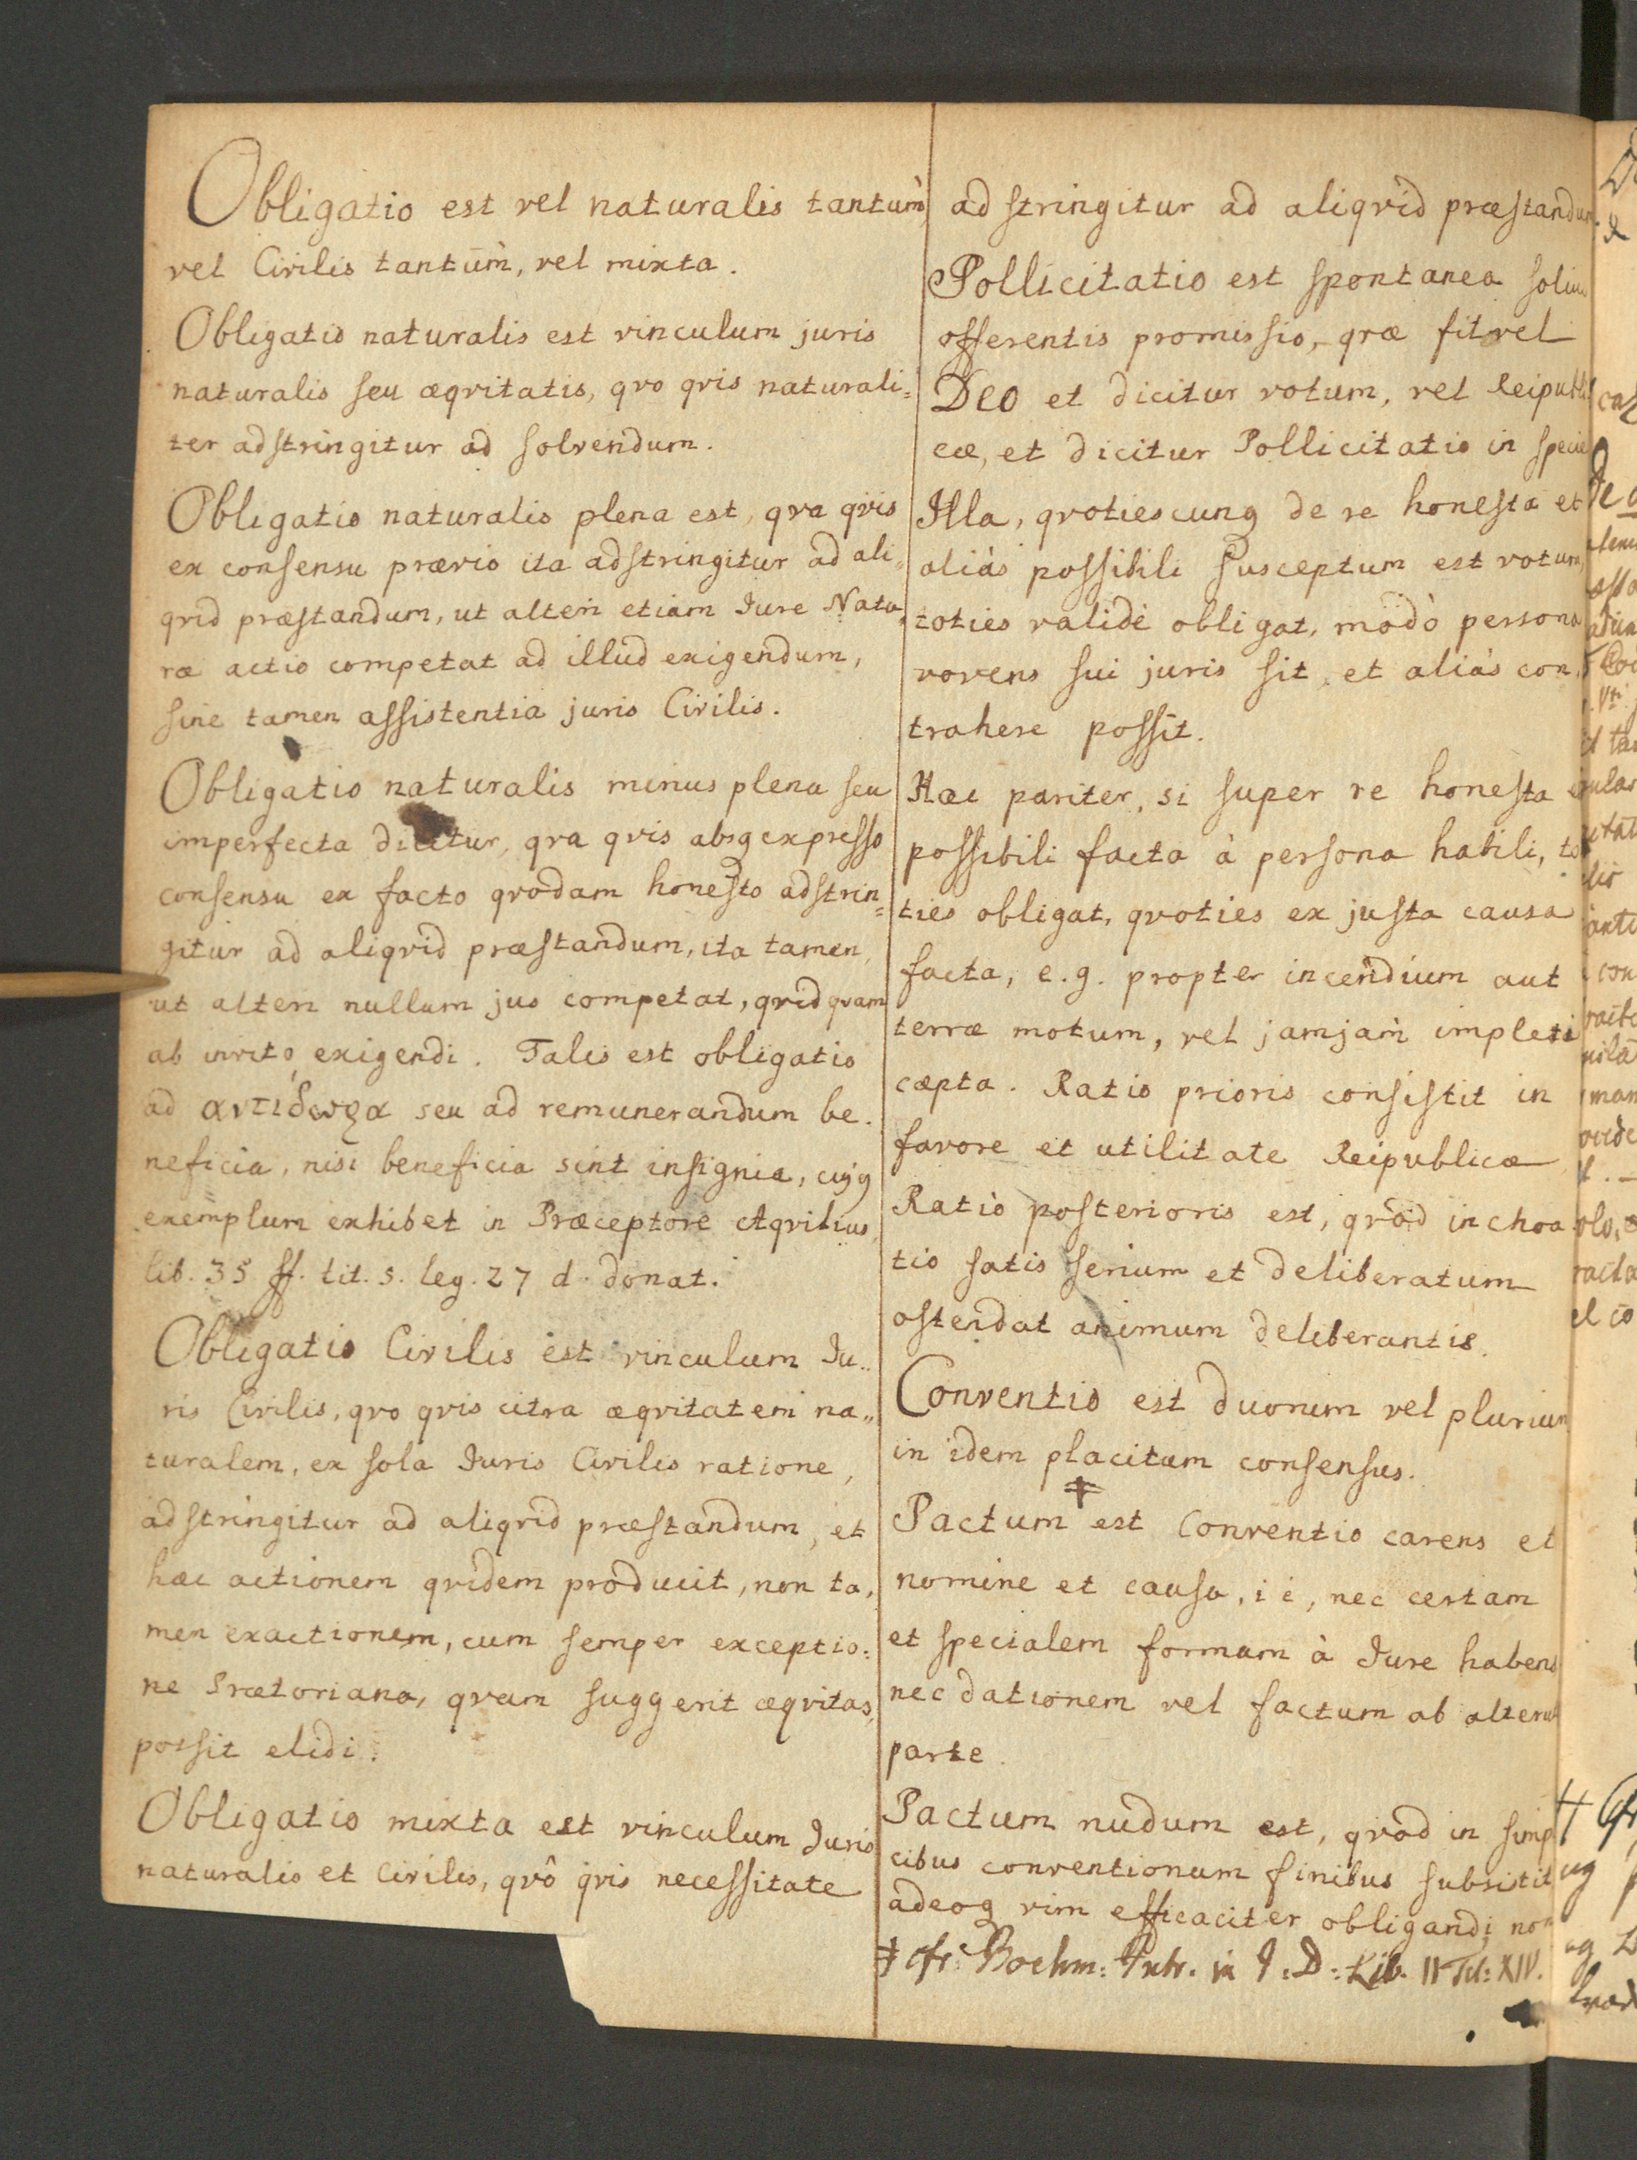 Obligatio est vel naturalis tantùm,
vel Civilis tantùm, vel mixta.
Obligatio naturalis est vinculum juris
naturalis seu æqvitatis, qvo qvis naturali=
ter adstringitur ad solvendum.
Obligatio naturalis plena est, qva qvis
ex consensu prævio ita adstringitur ad ali=
qvid præstandum, ut alteri etiam Jure Natu=
ræ actio competat ad illud exigendum,
sine tamen assistentia juris Civilis.
Obligatio naturalis minus plena seu
imperfecta dicitur, qva qvis absq expresso
consensu ex facto qvodam honesto adstrin=
gitur ad aliqvid præstandum, ita tamen,
ut alteri nullum jus competat, qvidqvam
ab invito exigendi. Talis est obligatio
ad αντιδωρα seu ad remunerandum be=
neficia, nisi beneficia sint insignia, cujq
exemplum exhibet in Præceptore Aqvilius,
lib. 35 ff. tit. 5. leg. 27 d. donat.
Obligatio Civilis est vinculum Ju=
ris Civilis, qvo qvis citra æqvitatem na=
turalem, ex sola Juris Civilis ratione,
adstringitur ad aliqvid præstandum, et
hæc actionem qvidem producit, non ta=
men exactionem, cum semper exceptio=
ne Prætoriana, qvam suggerit æqvitas,
possit elidi.
Obligatio mixta est vinculum Juris
naturalis et Civilis, qvô qvis necessitate
adstringitur ad aliqvid præstandum.
Pollicitatio est spontanea solius
offerentis promissio, qvæ fit vel
DEO et dicitur votum, vel Reipubli
cæ, et dicitur Pollicitatio in specie
Illa, qvotiescunq de re honesta et
aliàs possibili susceptum est votum,
toties validè obligat, modò persona
vovens sui juris sit, et aliàs con=
trahere possit.
Hæc pariter, si super re honesta et
possibili facta à persona habili, to
ties obligat, qvoties ex justa causa
facta, e.g. propter incendium aut
terræ motum, vel jamjam impleri
cæpta. Ratio prioris consistit in
favore et utilitate Reipublicæ
Ratio posterioris est, qvòd inchoa
tio satis serium et deliberatum
ostendat animum deliberantis.
Conventio est duorum vel plurium
in idem placitum consensus.
Pactum ‡ est Conventio carens et
nomine et causa, i e, nec certam
et specialem formam à Jure habens
nec dationem vel factum ab alteru
parte.
Pactum nudum est, qvòd in simp
cibus conventionum finibus subsistit
adeoq vim efficaciter obligandi non
‡ cfr: Boehm: Intr. in J: D: Lib. II Tit: XIV.